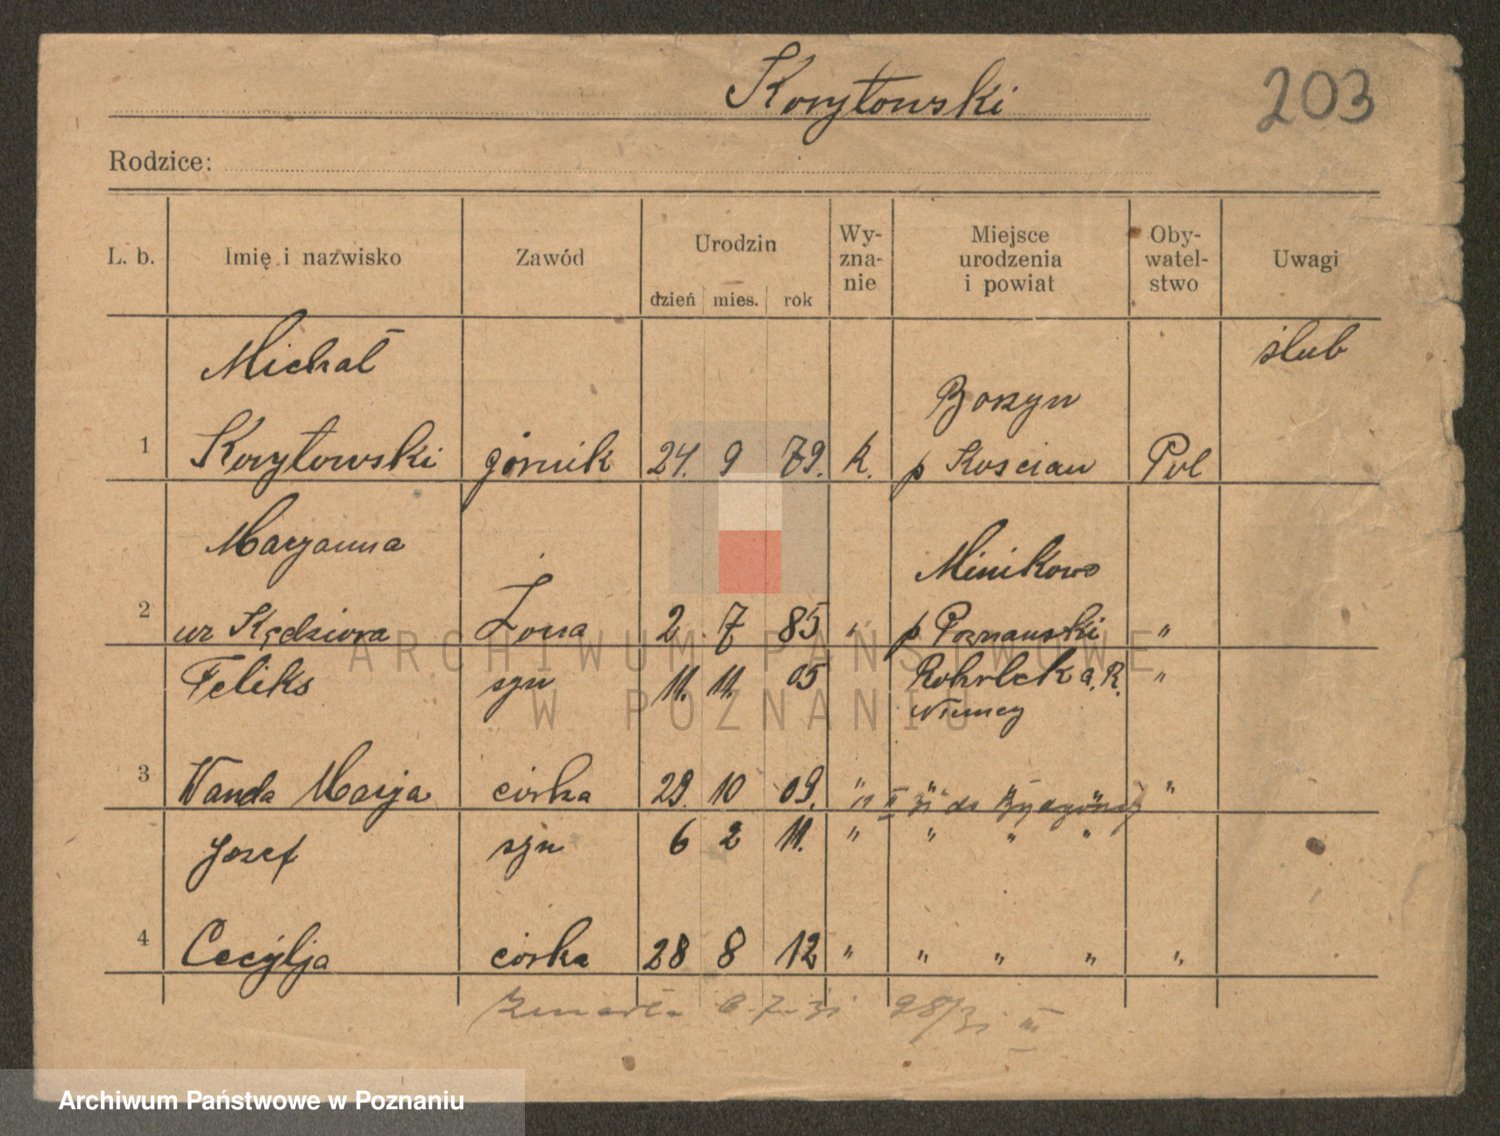 Korytowski 203
Rodzice:
L. b. Imię i nazwisko Zawód Urodzin dzień mies. rok Wy-zna-nie Miejsce urodzenia i powiat Oby-watel-stwo Uwagi
Michał ślub
1 Korytowski górnik 24. 9 79. k. p Kościan Pol
Maryanna Minikowo
2 ur Kędziora Żona 2 7 85 " p Poznański "
Feliks syn 11. 11. 05 a. R. "
Niemcy
3 Wanda Marja córka 29. 10 09. " "
Józef syn 6 2 11. " " " "
4 Cecylja córka 28 8 12 " " " " "
Zmarła 6.7.31 98/31 III
ARCHIWUM PAŃSTWOWE
W POZNANIU
Archiwum Państwowe w Poznaniu